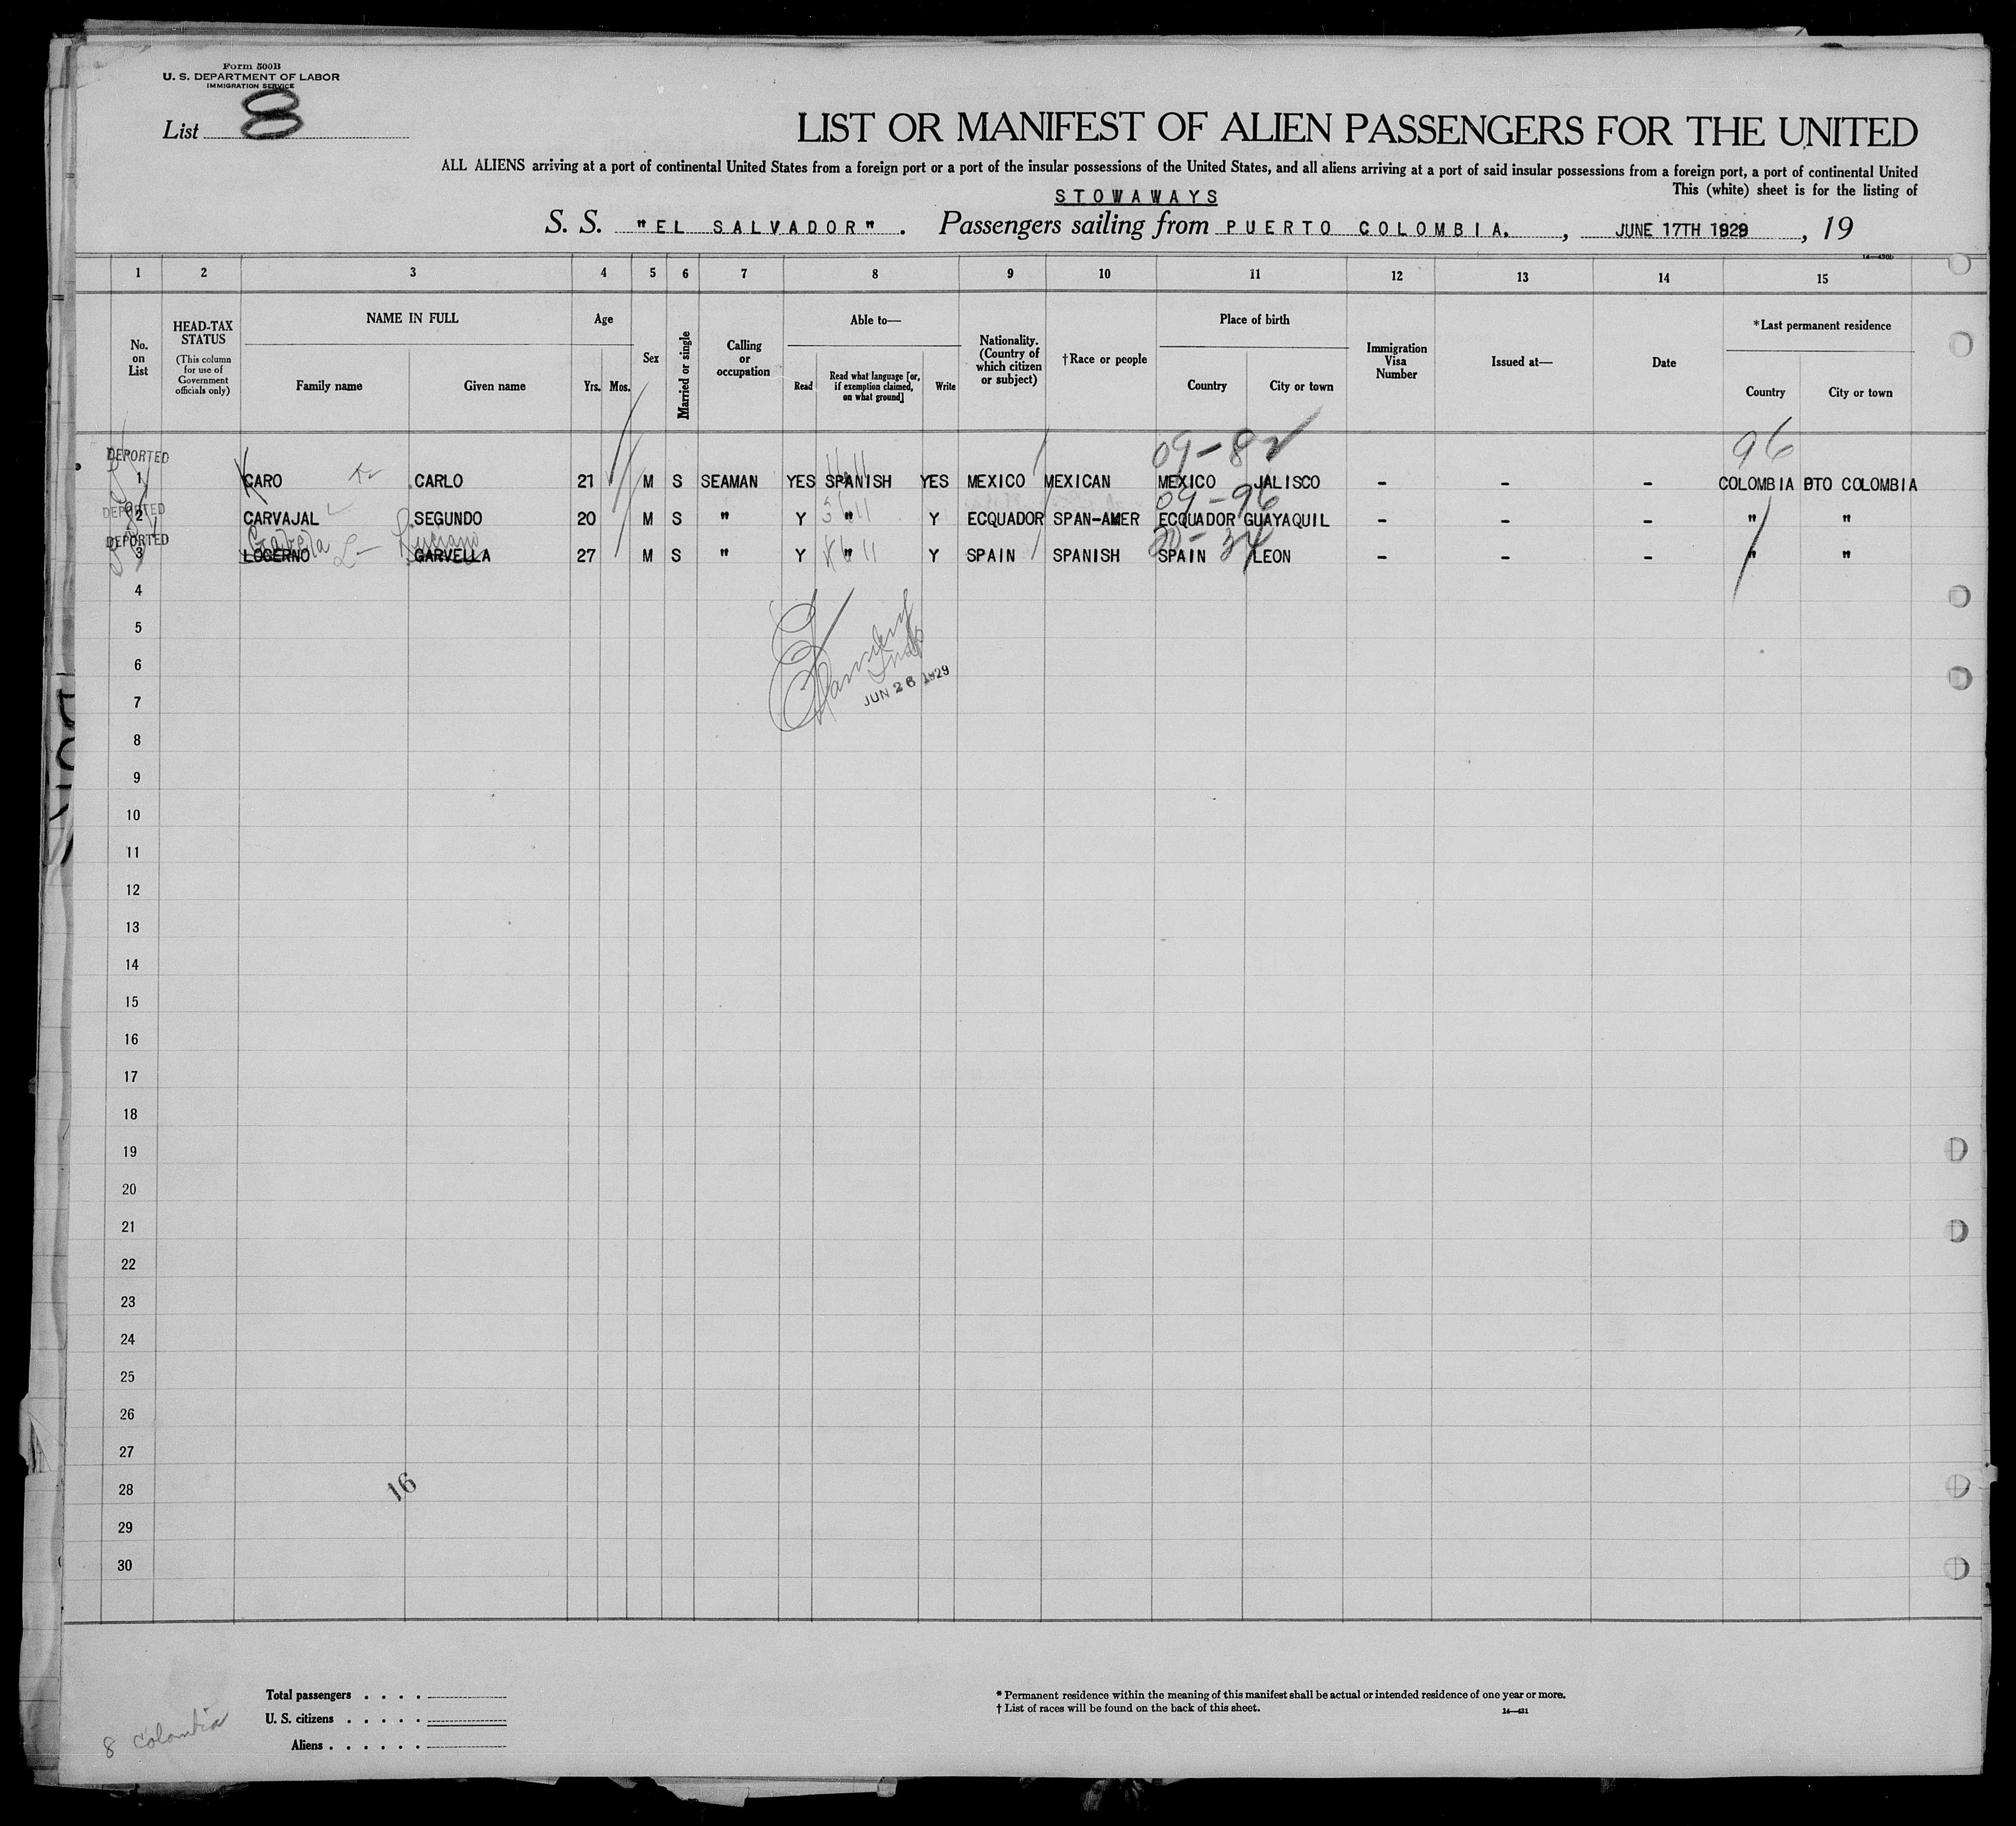 Form 500B
U. S. DEPARTMENT OF LABOR
IMMIGRATION SERVICE
List 8
LIST OR MANIFEST OF ALIEN PASSENGERS FOR THE UNITED
ALL ALIENS arriving at a port of continental United States from a foreign port or a port of the insular possessions of the United States, and all aliens arriving at a port of said insular possessions from a foreign port, a port of continental United
This (white) sheet is for the listing of
STOWAWAYS
S. S. "EL SALVADOR". Passengers sailing from PUERTO COLOMBIA. , JUNE 17TH 1929 , 19
14—430b
1 2 3 4 5 6 7 8 9 10 11 12 13 14 15
No. on List
HEAD-TAX STATUS
(This column for use of Government officials only)
NAME IN FULL
Family name Given name
Age
Yrs. Mos.
Sex
Married or single
Calling or occupation
Able to—
Read
Read what language [or, if exemption claimed, on what ground]
Write
Nationality. (Country of which citizen or subject)
†Race or people
Place of birth
Country City or town
Immigration Visa Number
Issued at—
Date
*Last permanent residence
Country City or town
09-82 96
DEPORTED
1 CARO CARLO 21 M S SEAMAN YES SPANISH YES MEXICO MEXICAN MEXICO JALISCO - - - COLOMBIA PTO COLOMBIA
09-96
DEPORTED
2 CARVAJAL SEGUNDO 20 M S " Y " Y ECQUADOR SPAN-AMER ECQUADOR GUAYAQUIL - - - " "
DEPORTED
Gavela Luciano
3 LOCERNO GARVELLA 27 M S " Y " Y SPAIN SPANISH SPAIN LEON - - - " "
4
5
6
7
JUN 26 1929
8
9
10
11
12
13
14
15
16
17
18
19
20
21
22
23
24
25
26
27
28
16
29
30
Total passengers . . . .
U. S. citizens . . . . .
Aliens . . . . . .
* Permanent residence within the meaning of this manifest shall be actual or intended residence of one year or more.
† List of races will be found on the back of this sheet.
14—431
8 Colombia